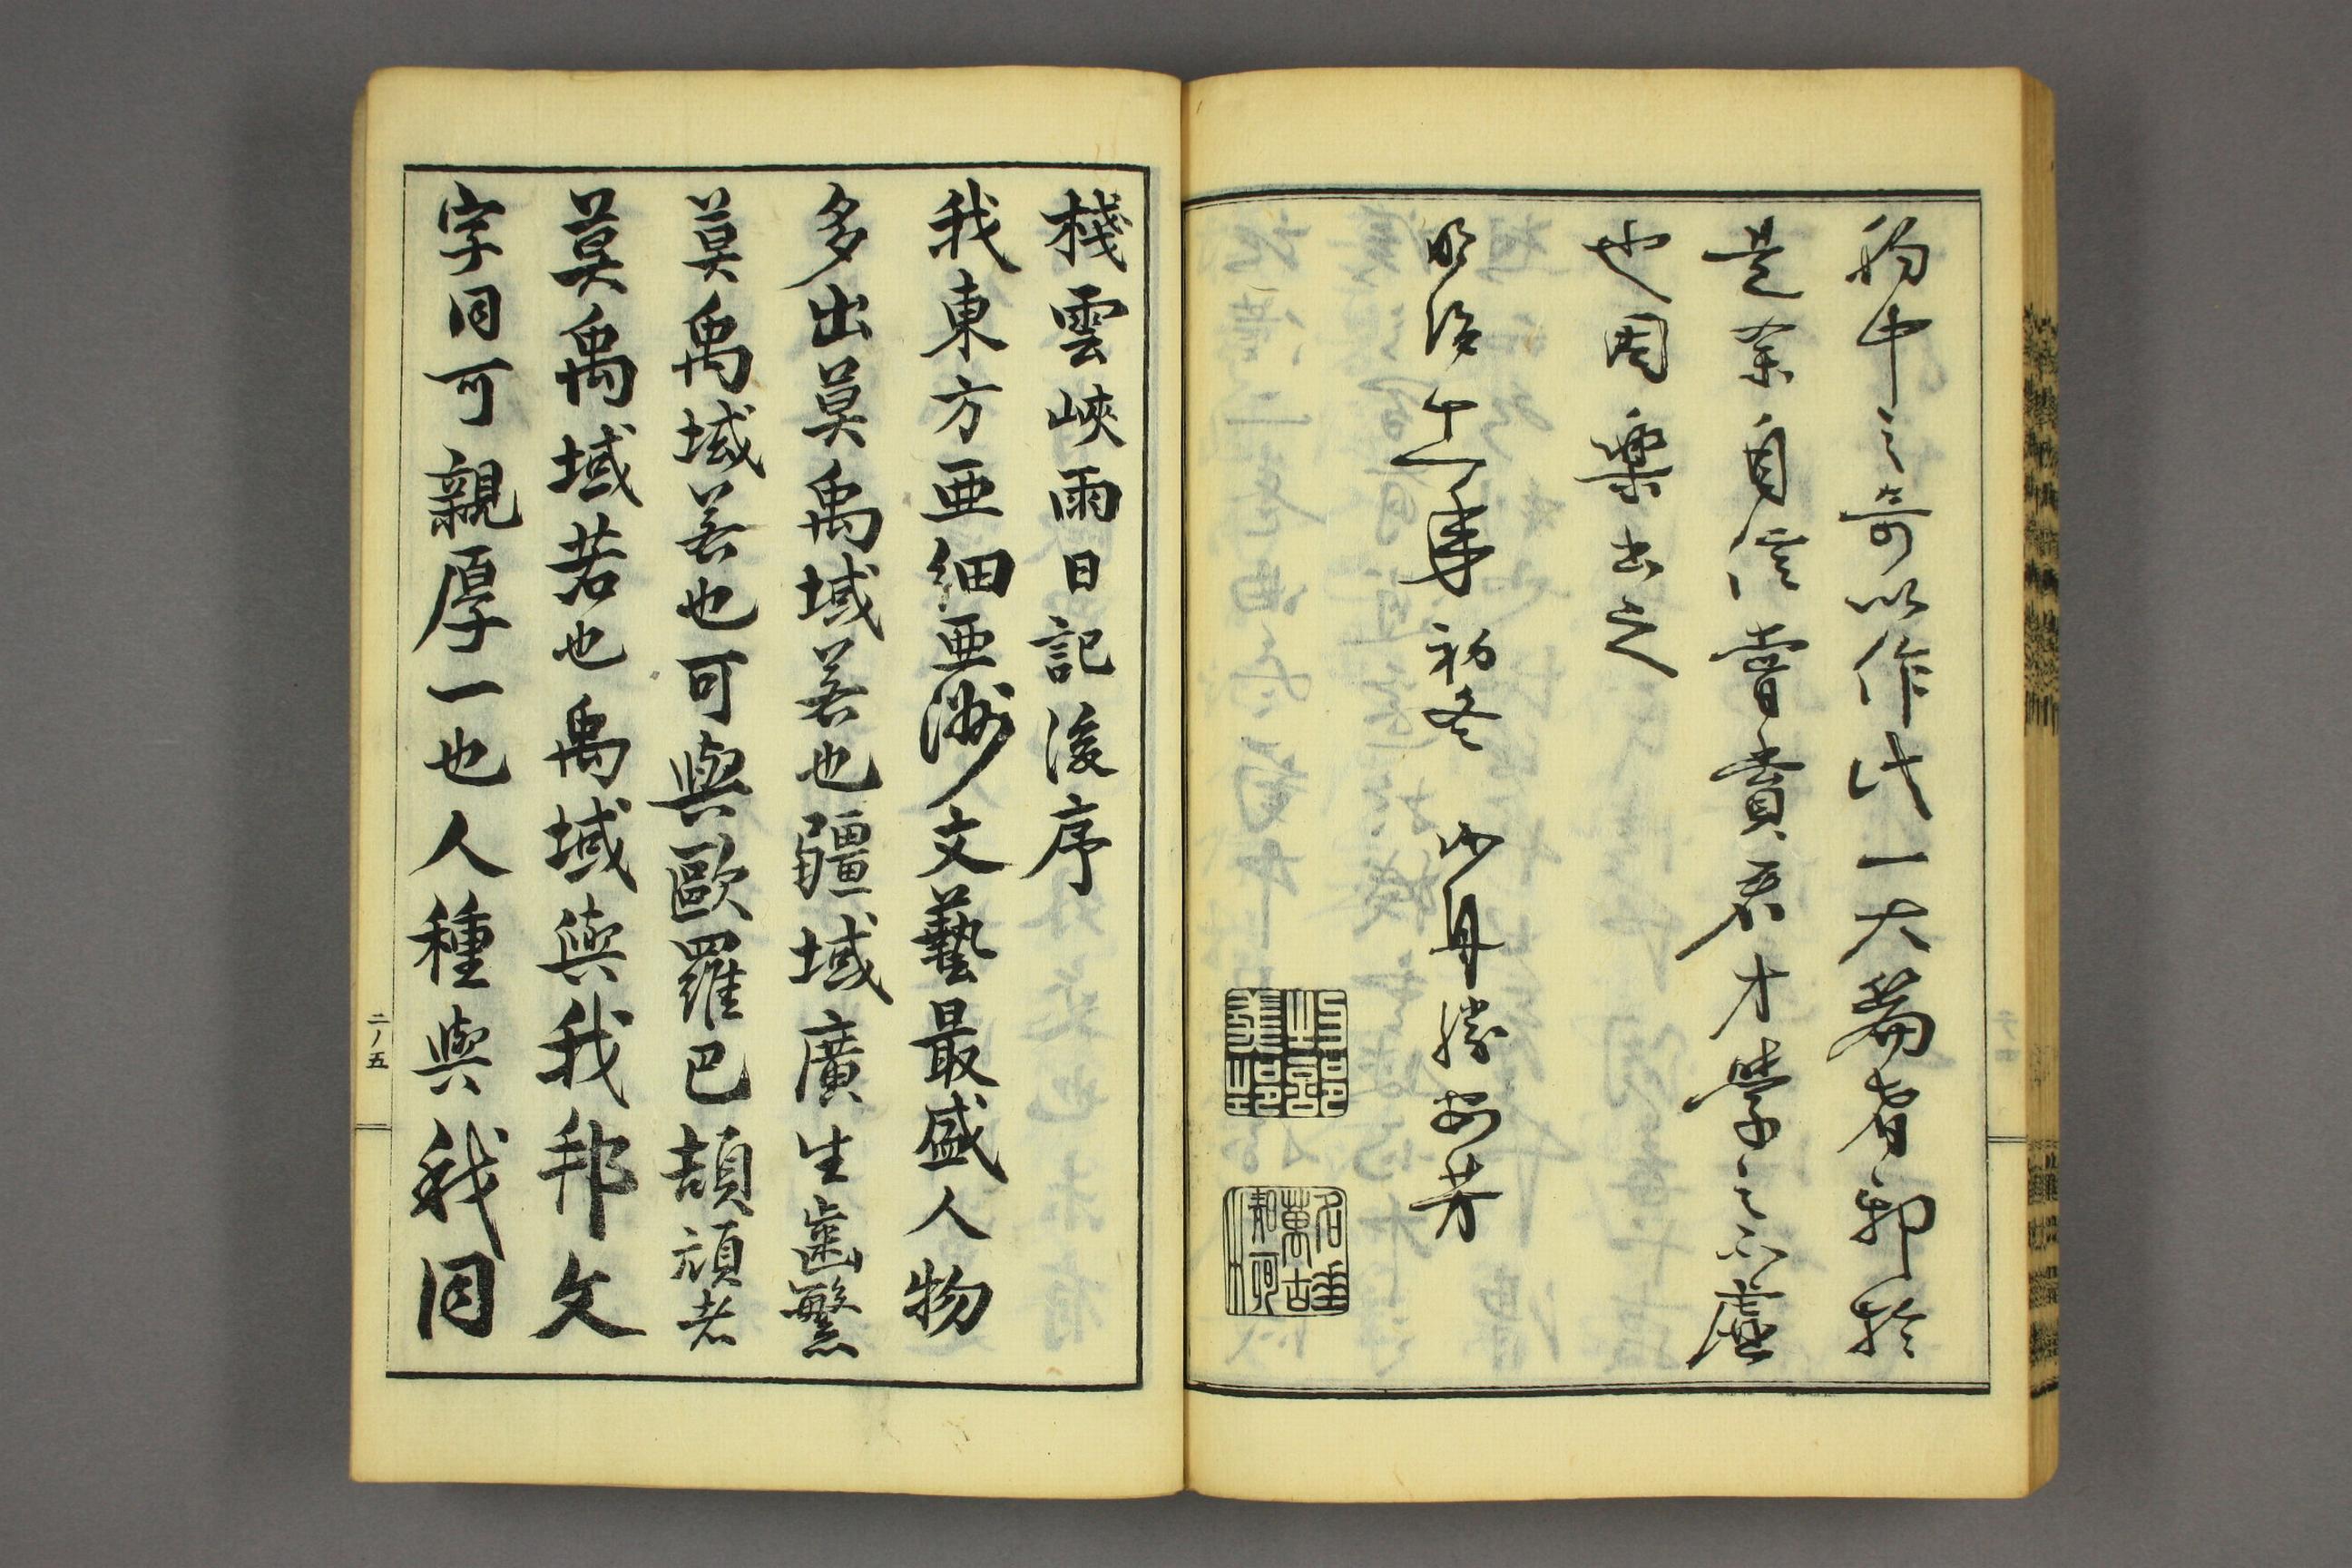 胸中之奇以作此一大篇者耶於
是余自信嘗賞君才學之不虚
也因樂書之
明治十一年初冬　海舟勝安芳
棧雲峽雨日記後序
我東方亜細亜洲文藝最盛人物
多出莫禹域若也疆域廣生齒繁
莫禹域若也可與歐羅巴頡頏者
莫禹域若也禹域與我邦文
字同可親厚一也人種與我同
二ノ五